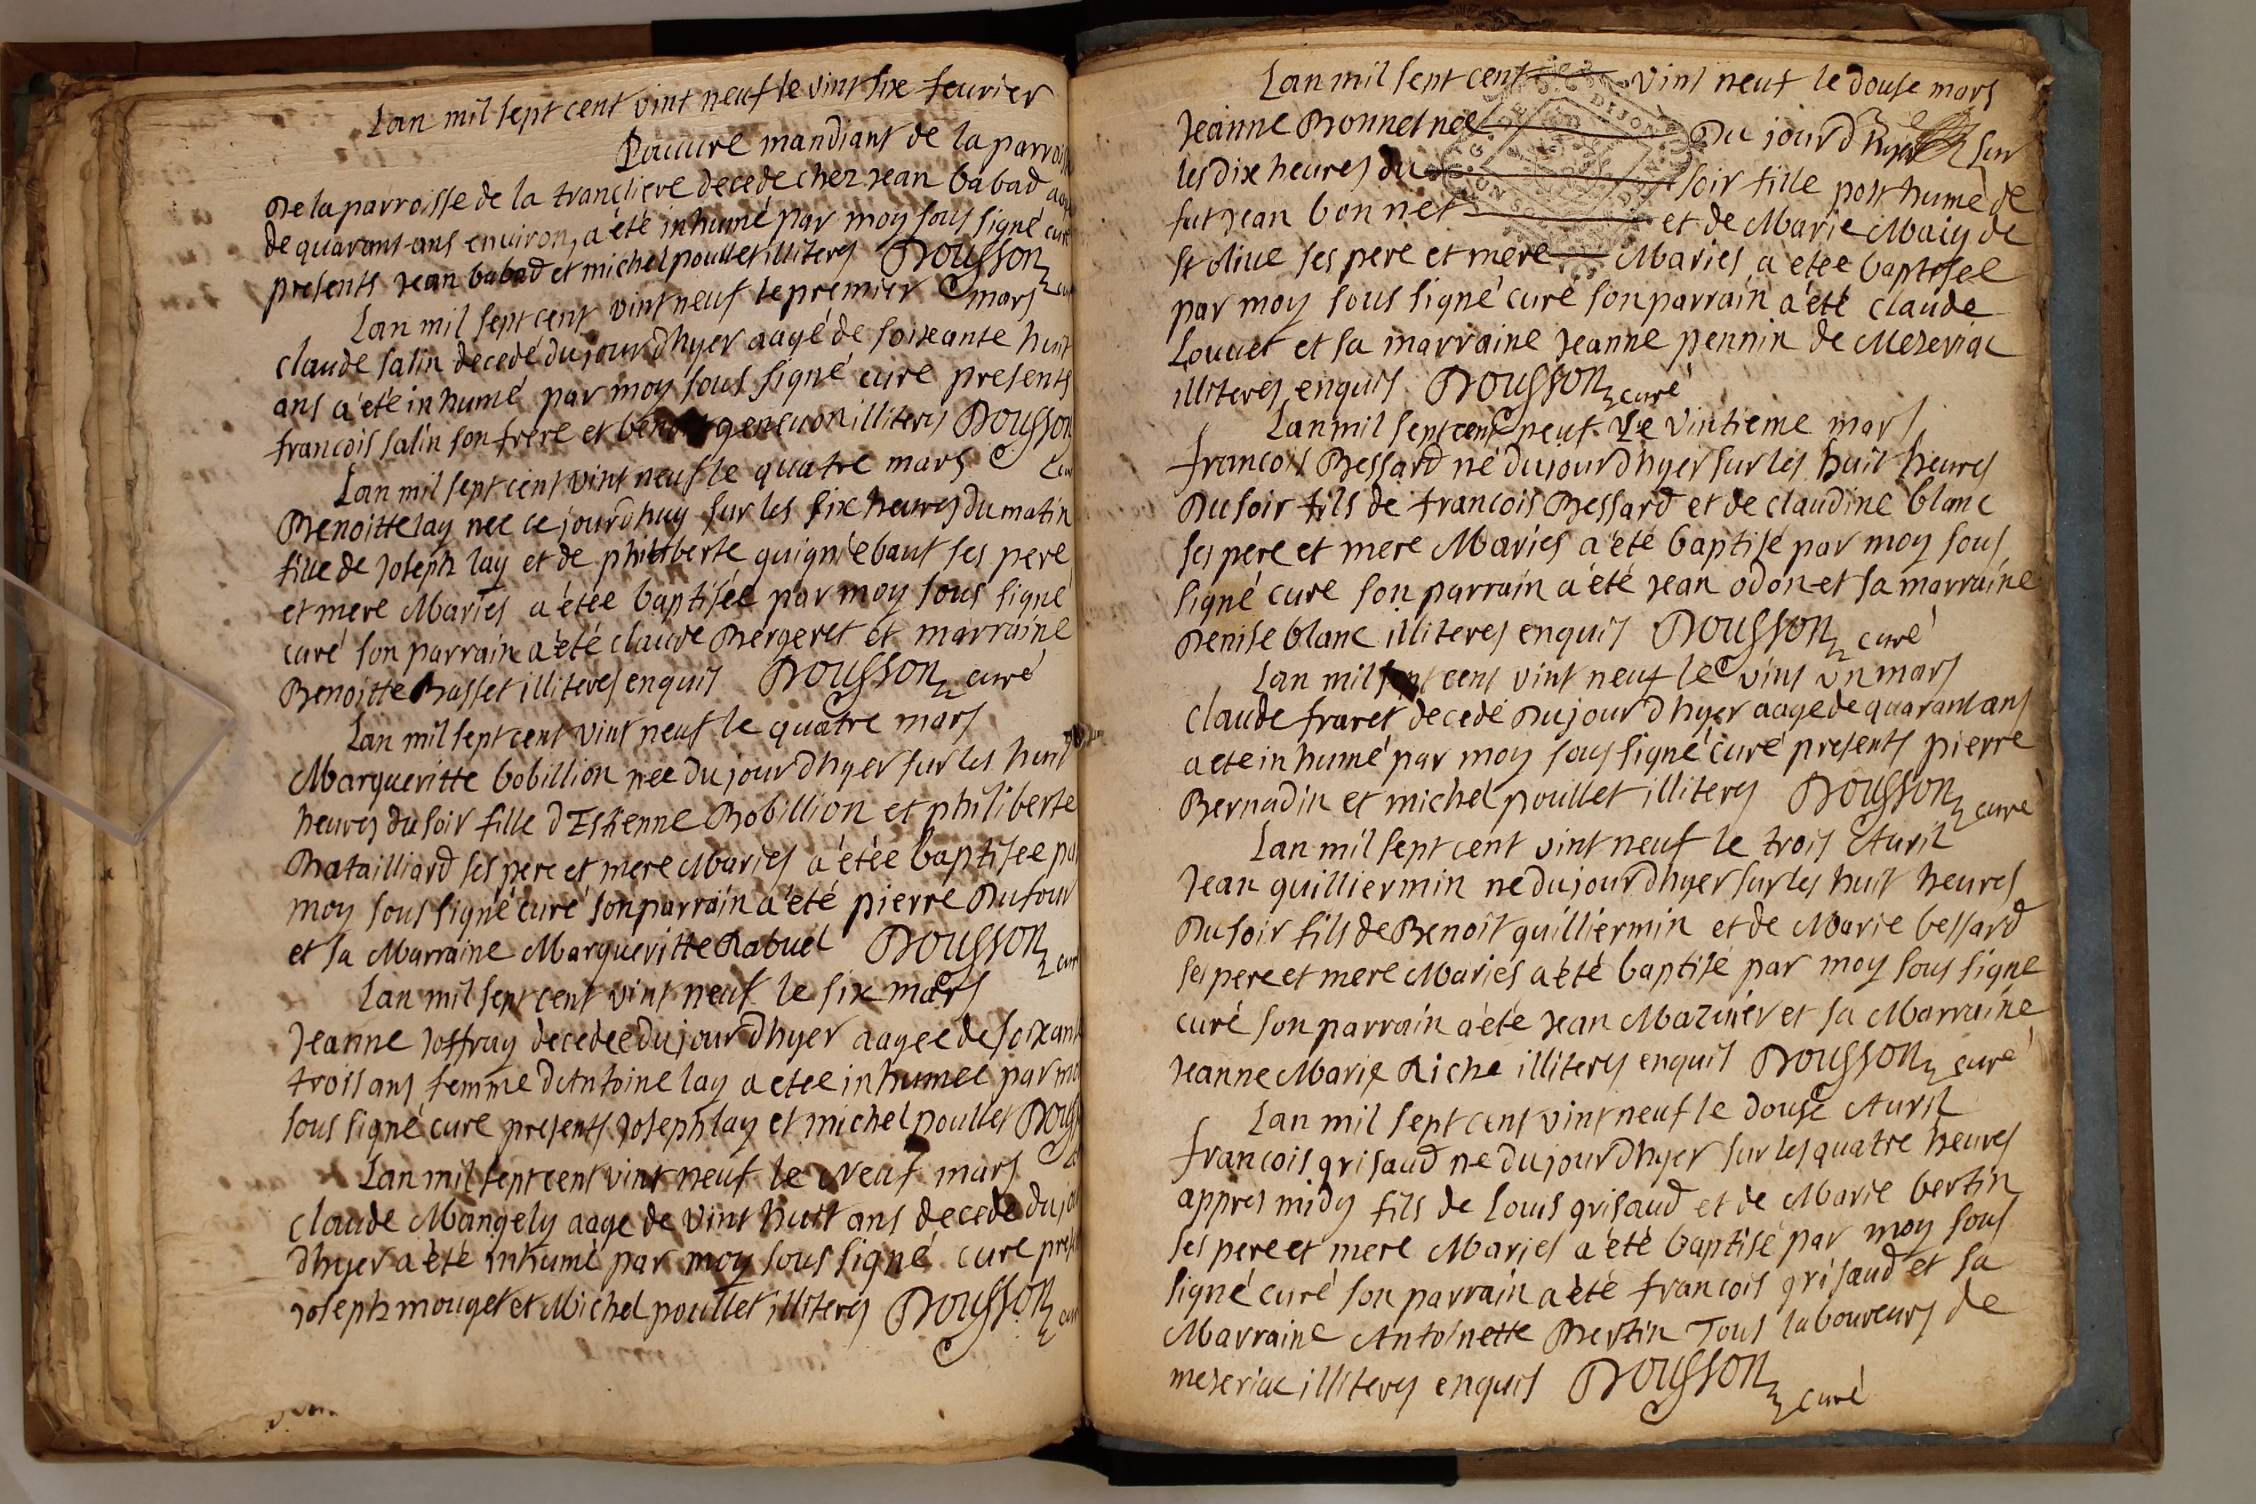 Lan mil sept cent vint neuf le vint six feurier
Pauure mandiant de la parroisse
De la parroisse de la trancliere decede chez Jean babad aagé
de quarant ans environ, a été inhumé par moy sous signé curé
presents Jean babad et michel poullet illiteres Dousson curé
Lan mil sept cent vint neuf le premier mars
claude salin décedé du jourdhyer aagé de soixante huit
ans a été inhumé par moy sous signé curé presents
francois salin son frere et genevon illiteres Dousson
curé
Lan mil sept cent vint neuf le quatre mars
Benoitte lay née ce jourdhuy sur les six heures du matin
fille de Joseph lay et de philiberte guignebaut ses pere
et mere Mariés a étée baptisée par moy sous signé
curé son parrain a été claude Bergeret et marraine
Benoitte Basset illiteres enquis Dousson curé
Lan mil sept cent vint neuf le quatre mars
Margueritte bobillion née du jourdhyer sur les huit
heures du soir fille dEstienne Bobillion et philiberte
Batailliard ses pere et mere Mariés a étée baptisée par
moy sous signé curé son parrain a été pierre Dufour
et sa Marraine Margueritte Rabuel Dousson curé
Lan mil sept cent vint neuf le six mars
Jeanne Joffray décedée du jourdhyer aagée de soixante
trois ans femme dAntoine lay a étée inhumée par moy
sous signé curé presents Joseph lay et michel poullet Dousson
Lan mil sept cent vint neuf le Neuf mars
claude Mangely aagé de vint huit ans décedé du jour
dhyer a été inhumé par moy sous signé curé presents
Joseph mouget et Michel poullet illiteres Dousson curé
Lan mil sept cent vint neuf le douse mars
Jeanne Bonnet née Du jourdhyer sur
les dix heures du soir fille posthume de
fut Jean bonnet et de Marie Maly de
st oliue ses pere et mere Mariés a étée baptisée
par moy sous signé curé son parrain a été claude
Louuet et sa marraine Jeanne pennin de Mezeriac
illiteres enquis Dousson curé
Lan mil sept cent neuf Le vintieme mars
francois Bessard né du jourdhyer sur les huit heures
Du soir fils de francois Bessard et de claudine blanc
ses pere et mere Mariés a été baptisé par moy sous
signé curé son parrain a été Jean odon et sa marraine
Denise blanc illiteres enquis Dousson curé
Lan mil sept cent vint neuf le vint un mars
claude fraret decedé Du jourdhyer aagé de quarant ans
a été inhumé par moy sous signé curé presents pierre
Bernadin et michel poullet illiteres Dousson curé
Lan mil sept cent vint neuf le trois Auril
Jean guilliermin né du jourdhyer sur les huit heures
Du soir fils de Benoît guilliermin et de Marie bessard
ses pere et mere Mariés a été baptisé par moy sous signé
curé son parrain a été Jean Mazuier et sa Marraine
Jeanne Marie Riche illiteres enquis Dousson curé
Lan mil sept cent vint neuf le douse Auril
francois grisaud né du jourdhyer sur les quatre heures
appres midy fils de Louis grisaud et de Marie bertin
ses pere et mere Mariés a été baptisé par moy sous
signé curé son parrain a été francois grisaud et sa
Marraine Antoinette Bertin Tous laboureurs de
mezeriac illiteres enquis Dousson curé